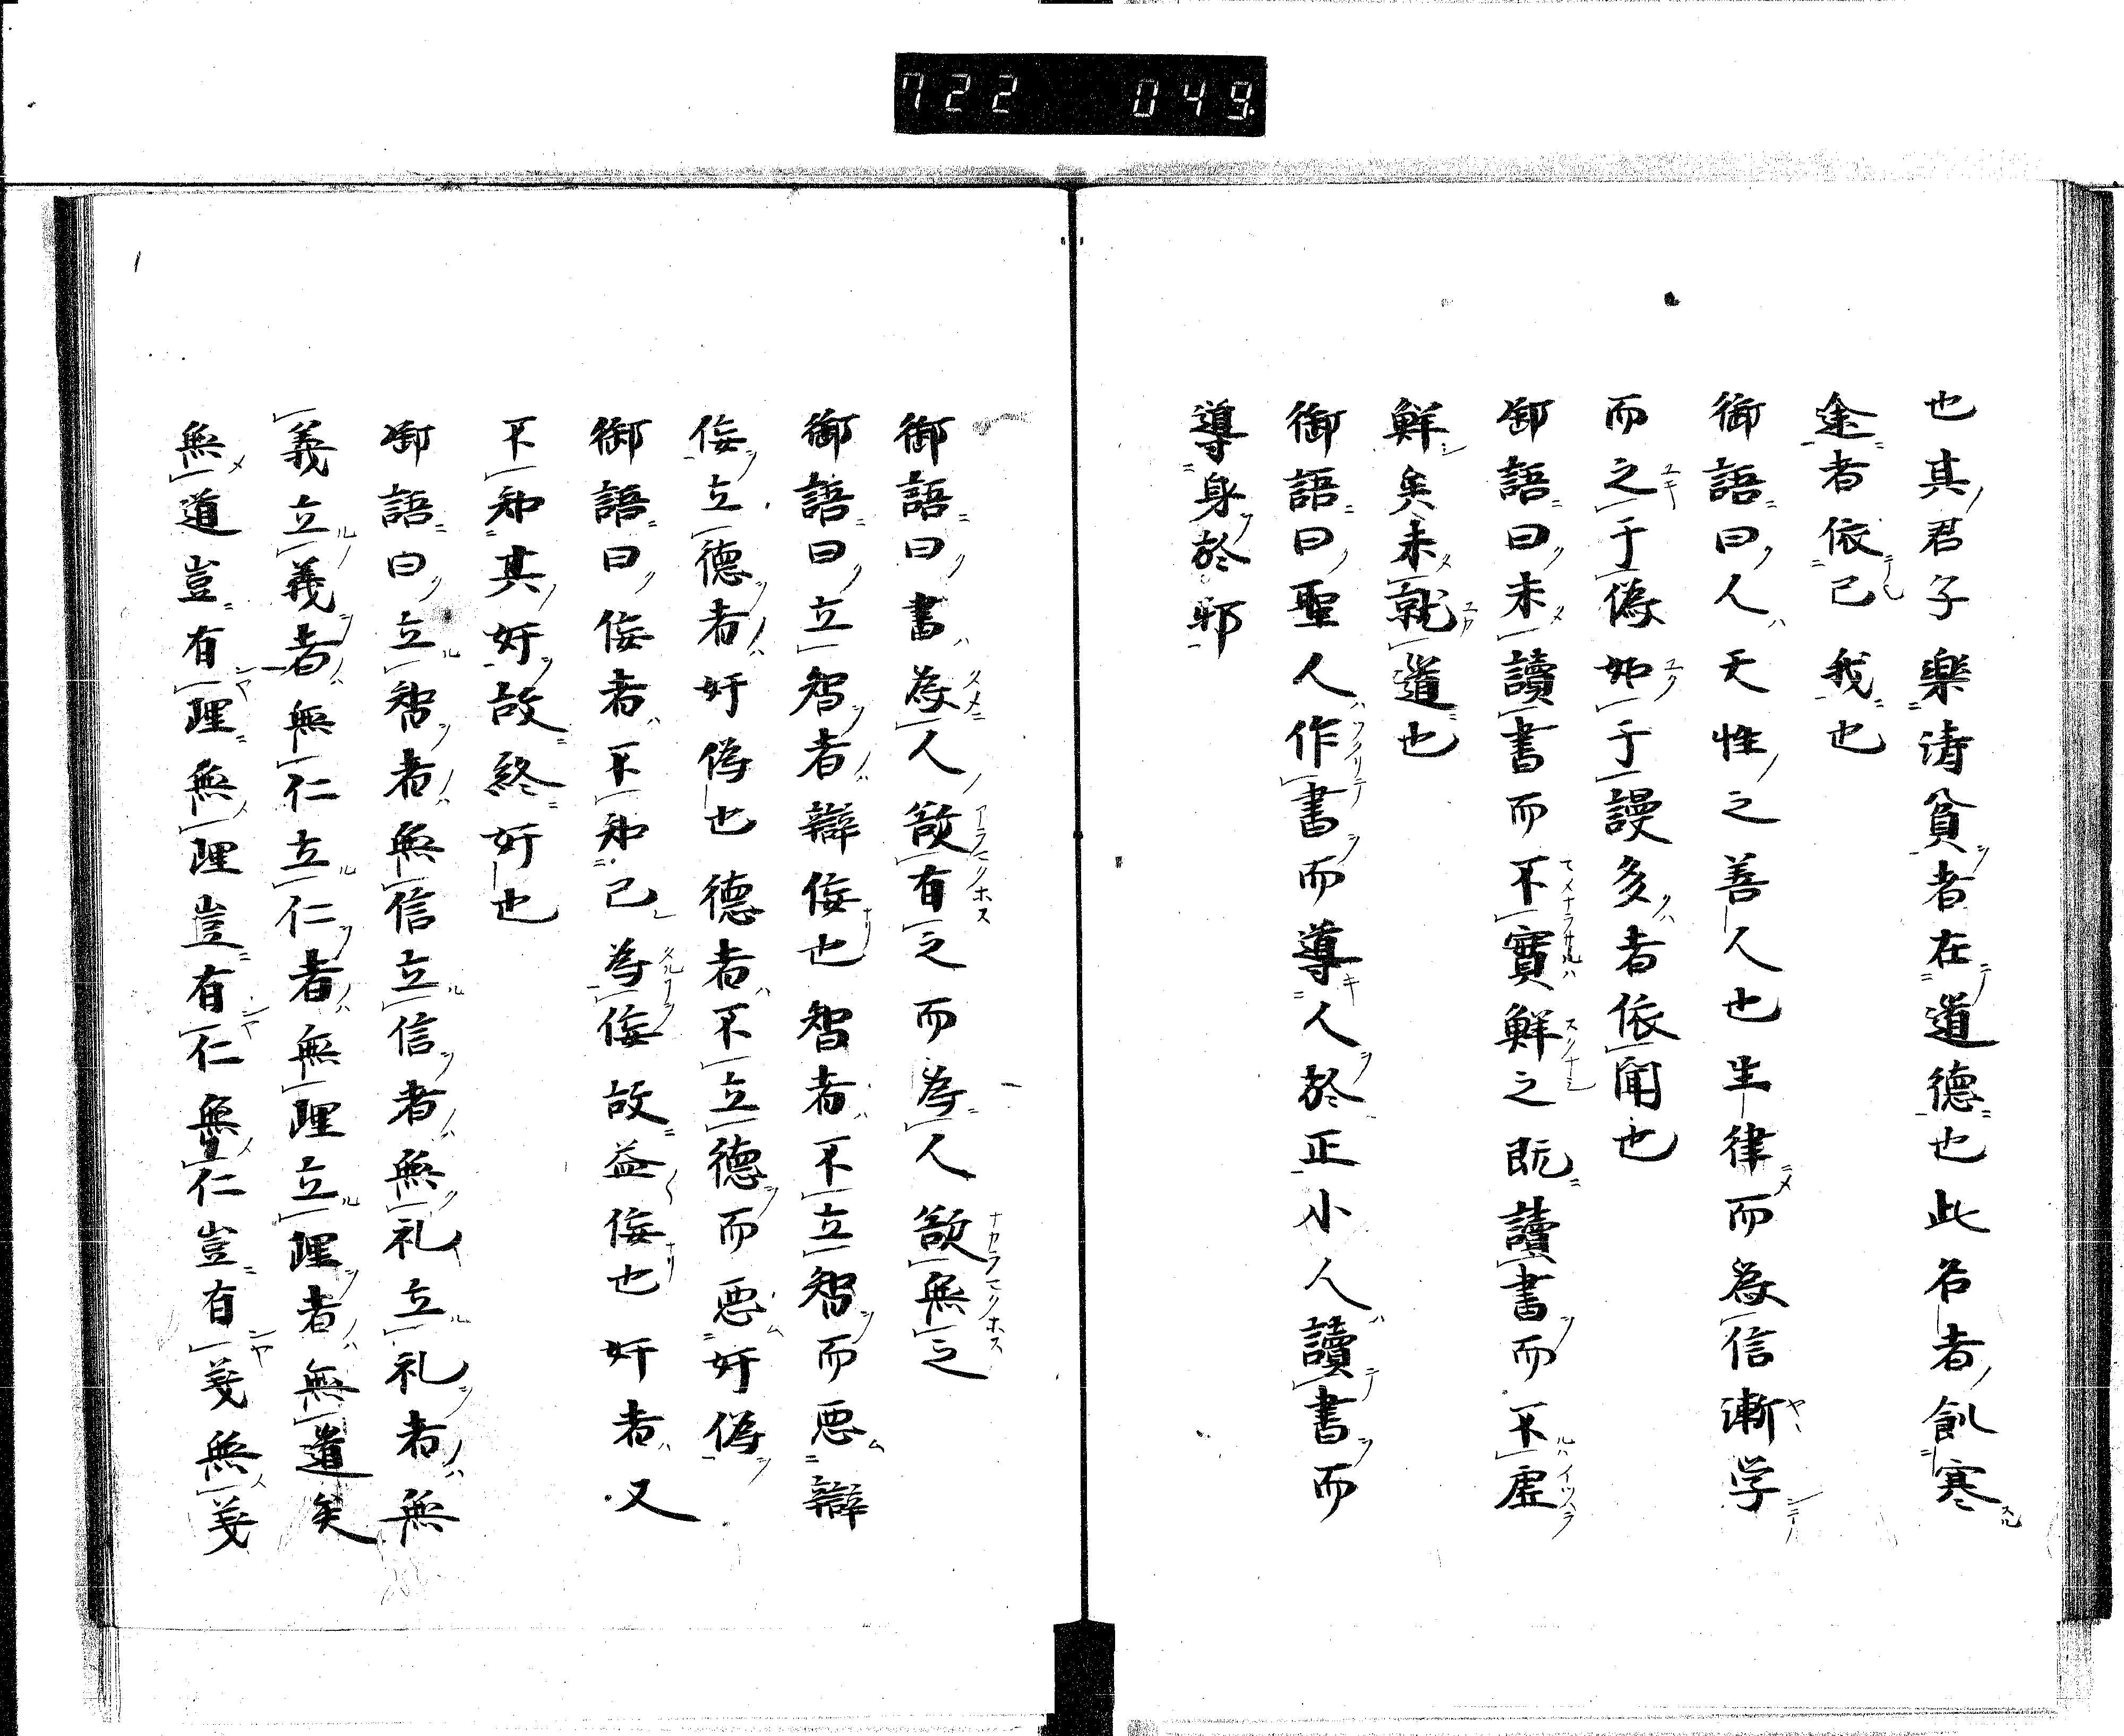 722 049
也其君子樂清貧者在道德也此名者飢寒
途者依己我也
御語曰人天性之善人也生律而為信漸学
而之于偽如于謾多者依聞也
御語曰未讀書而不實鮮之既讀書而不虛
鮮矣未就道也
御語曰聖人作書而導人於正小人讀書而
導身於邪
御語曰書為人欲有之而為人欲無之
御語曰立智者辯佞也智者不立智而悪辯
佞立德者奸偽也德者不立德而悪奸偽
御語曰佞者不知己為佞故益佞也奸者又
不知其奸故終奸也
御語曰立智者無信立信者無礼立礼者無
義立義者無仁立仁者無理立理者無道矣
無道豈有理無理豈有仁無仁豈有義無義